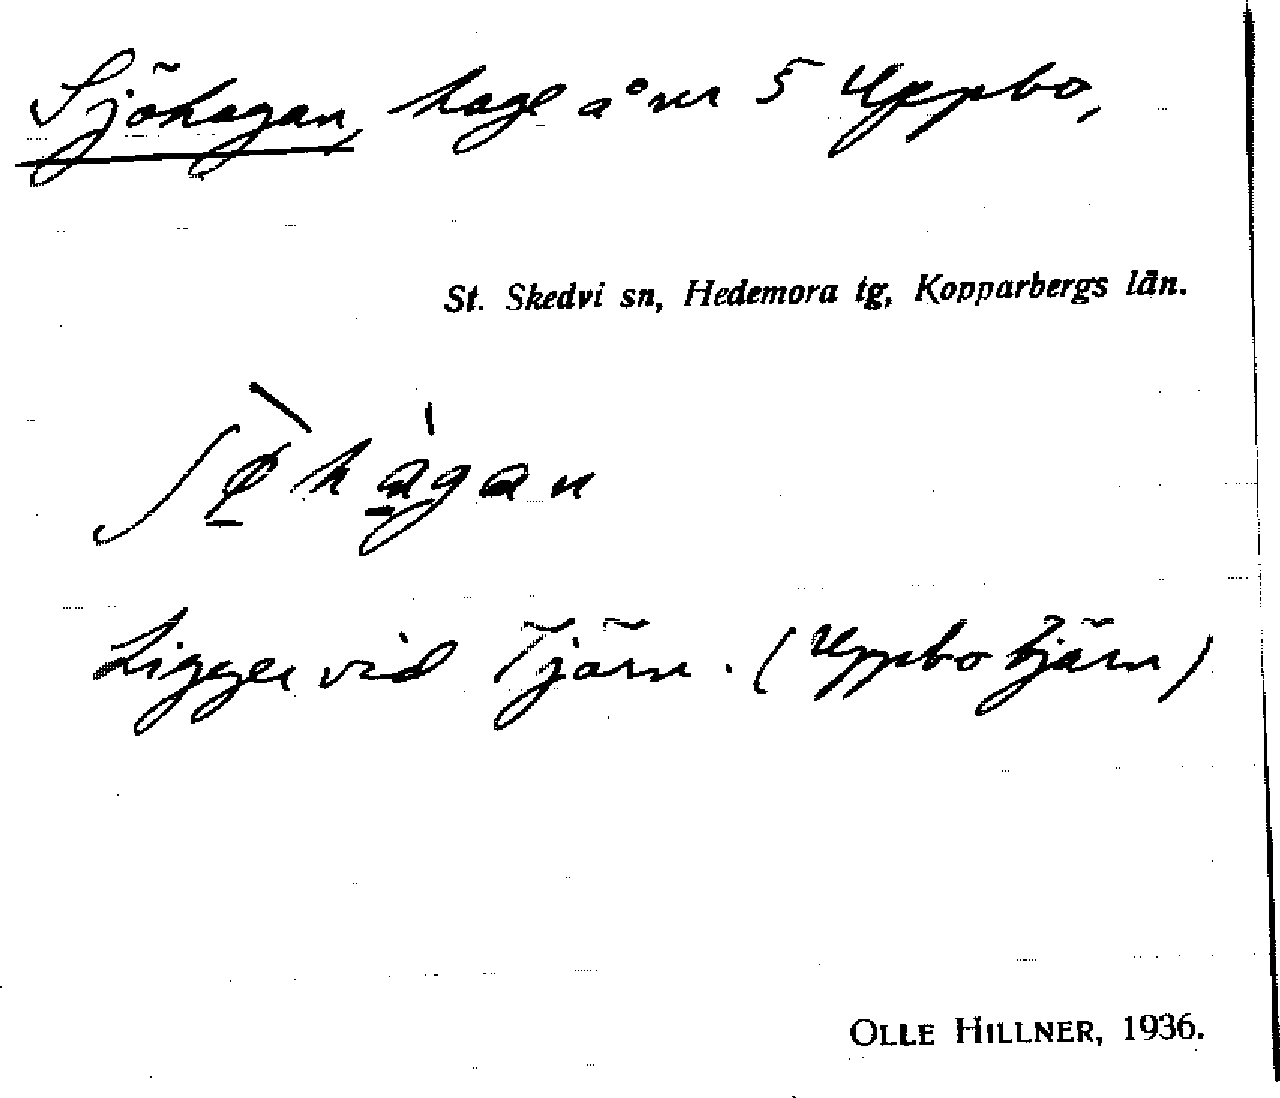 Sjöhagan, hage å nr 5 Uppbo,
St. Skedvi sn, Hedemora tg, Kopparbergs län.
ʃø̠̀hа̠̍gan
Ligger vid Tjärn. (Uppbo tjärn)
OLLE HILLNER, 1936.